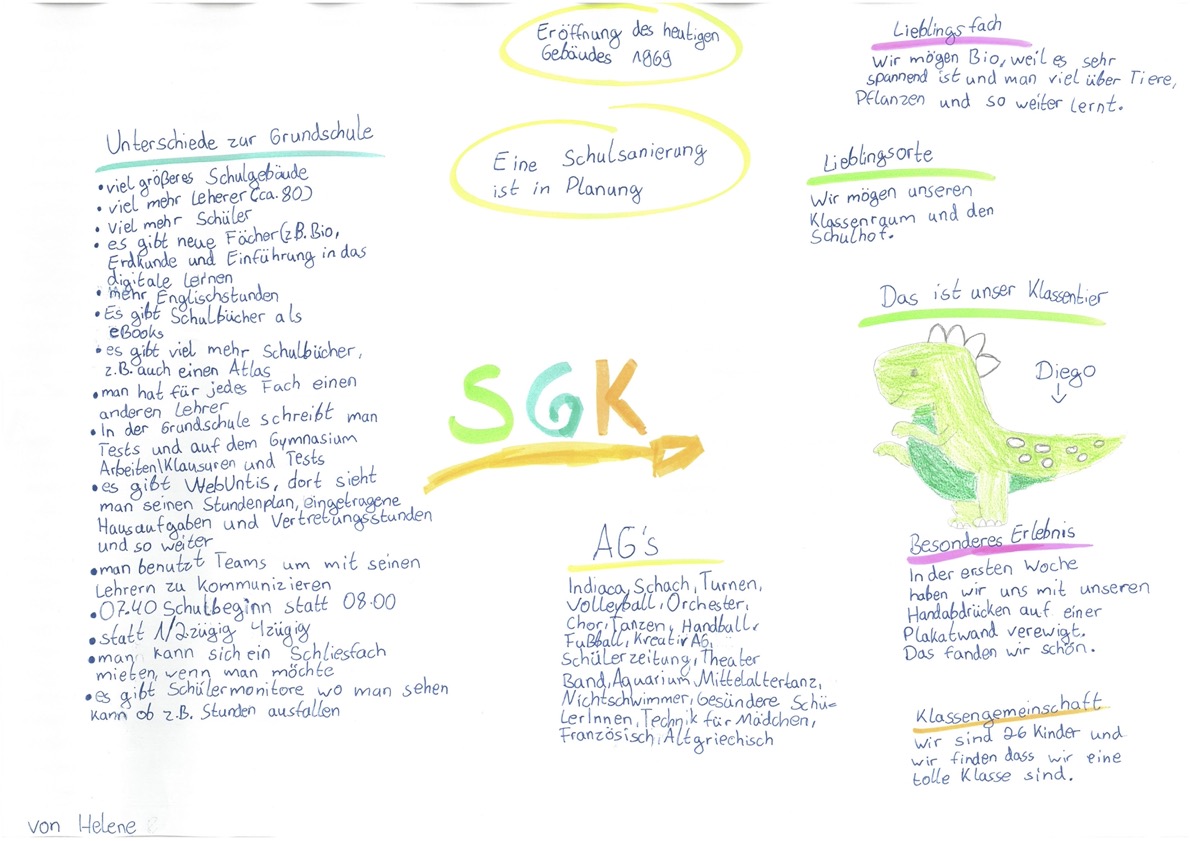 Eröffnung des heutigen
Gebäudes 1969
Eine Schulsanierung
ist in Planung
Unterschiede zur Grundschule
• viel größeres Schulgebäude
• viel mehr Leherer (ca. 80)
• viel mehr Schüler
• es gibt neue Fächer (z.B. Bio,
Erdkunde und Einführung in das
digitale Lernen
• mehr Englischstunden
• Es gibt Schulbücher als
eBooks
• es gibt viel mehr Schulbücher,
z.B. auch einen Atlas
• man hat für jedes Fach einen
anderen Lehrer
• In der Grundschule schreibt man
Tests und auf dem Gymnasium
Arbeiten\Klausuren und Tests
• es gibt WebUntis, dort sieht
man seinen Stundenplan, eingetragene
Hausaufgaben und Vertretungsstunden
und so weiter
• man benutzt Teams um mit seinen
Lehrern zu Kommunizieren
• 07.40 Schulbeginn statt 08.00
• statt 1/2zügig 4zügig
• man kann sich ein Schliesfach
mieten, wenn man möchte
• es gibt Schülermonitore wo man sehen
kann ob z.B. Stunden ausfallen
von Helene
SGK
AG's
Indiaca, Schach, Turnen,
Volleyball, Orchester,
Chor, Tanzen, Handball,
Fußball, Kreativ AG,
Schülerzeitung, Theater
Band, Aquarium, Mittelaltertanz,
Nichtschwimmer, Gesündere Schü=
LerInnen, Technik für Mädchen,
Französisch, Altgriechisch
Lieblingsfach
Wir mögen Bio, weil es sehr
spannend ist und man viel über Tiere,
Pflanzen und so weiter lernt.
Lieblingsorte
Wir mögen unseren
Klassenraum und den
Schulhof.
Das ist unser Klassentier
Diego
Besonderes Erlebnis
In der ersten Woche
haben wir uns mit unseren
Handabdrücken auf einer
Plakatwand verewigt.
Das fanden wir schön.
Klassengemeinschaft
Wir sind 26 Kinder und
wir finden dass wir eine
tolle Klasse sind.